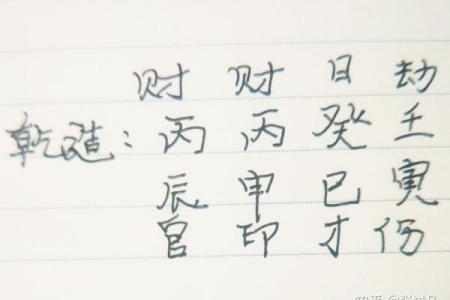 财 财 日 劫
乾造: 丙 丙 癸 壬
辰 申 巳 寅
官 印 才 伤